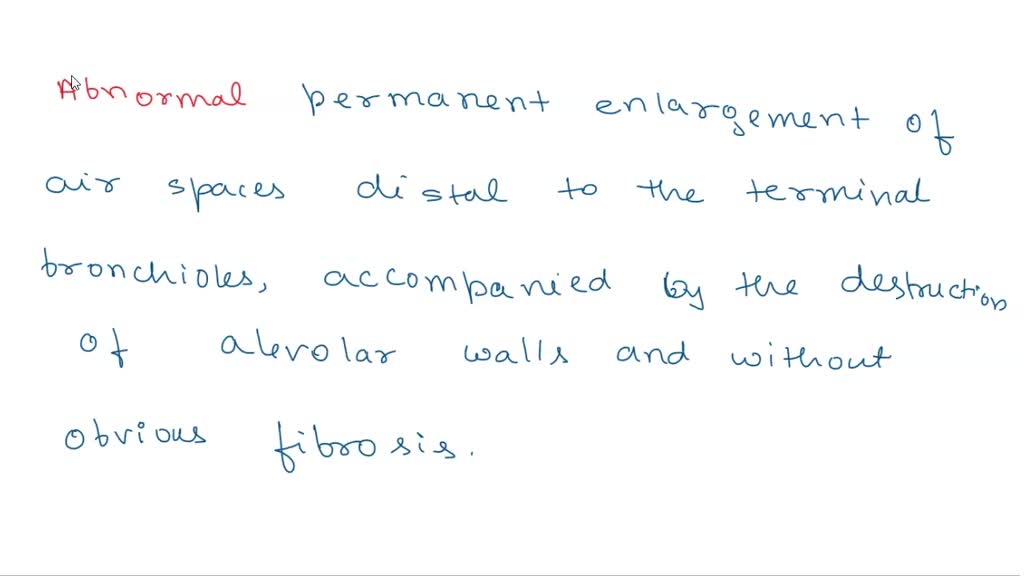 Abnormal permanent enlargement of
air spaces distal to the terminal
bronchioles, accompanied by the destruction
of alevolar walls and without
obvious fibrosis.